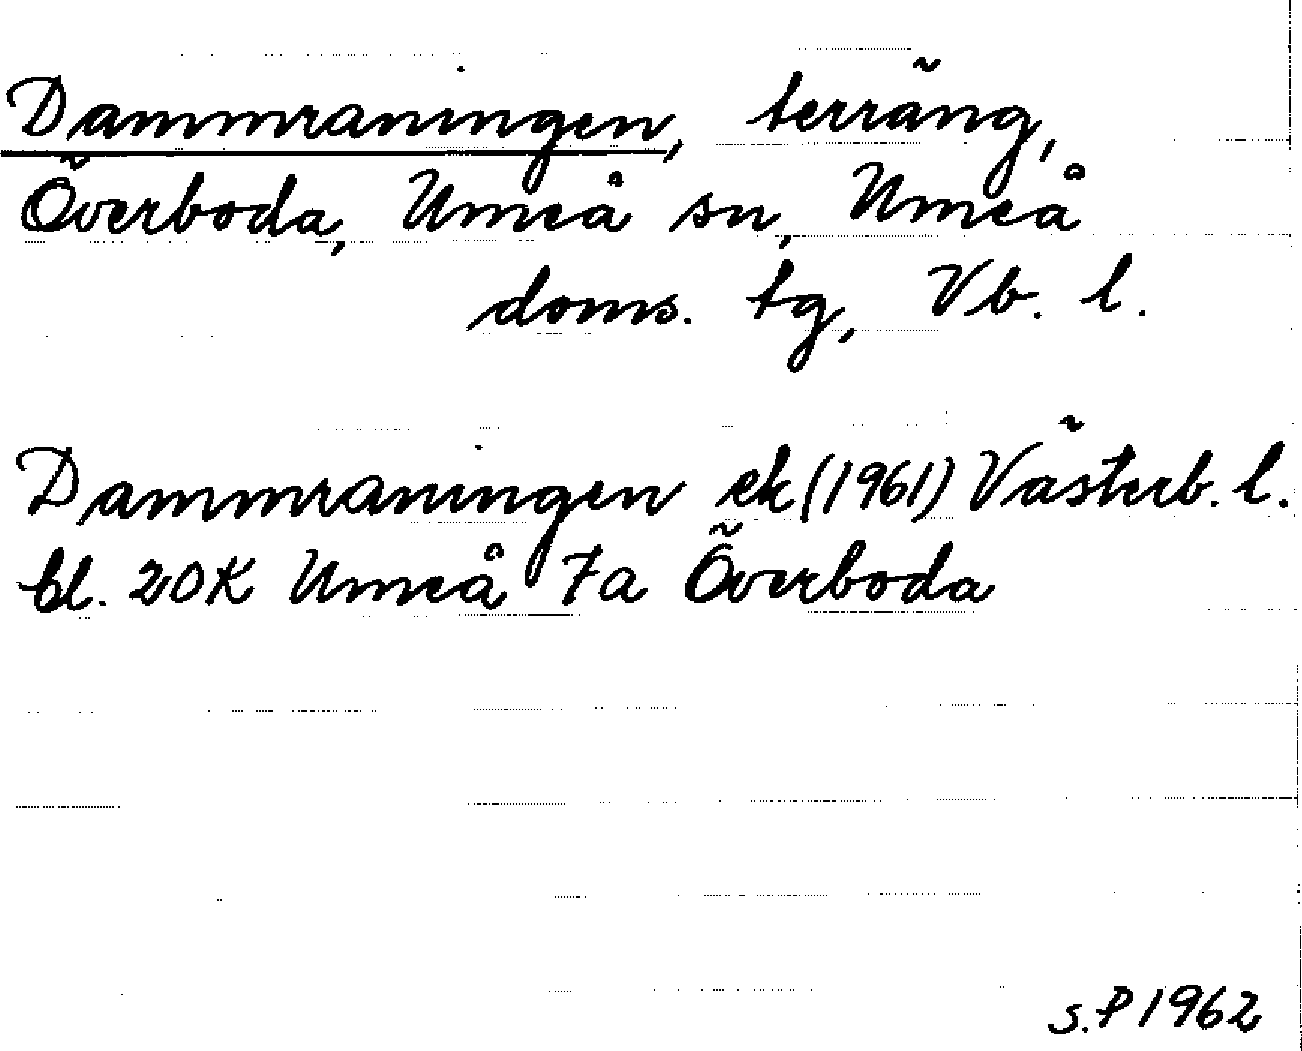 Dammraningen, terräng,
Överboda, Umeå sn, Umeå
doms. tg, Vb. l.
Dammraningen ek (1961) Västerb. l.
bl. 20K Umeå 7a Överboda
s. P 1962